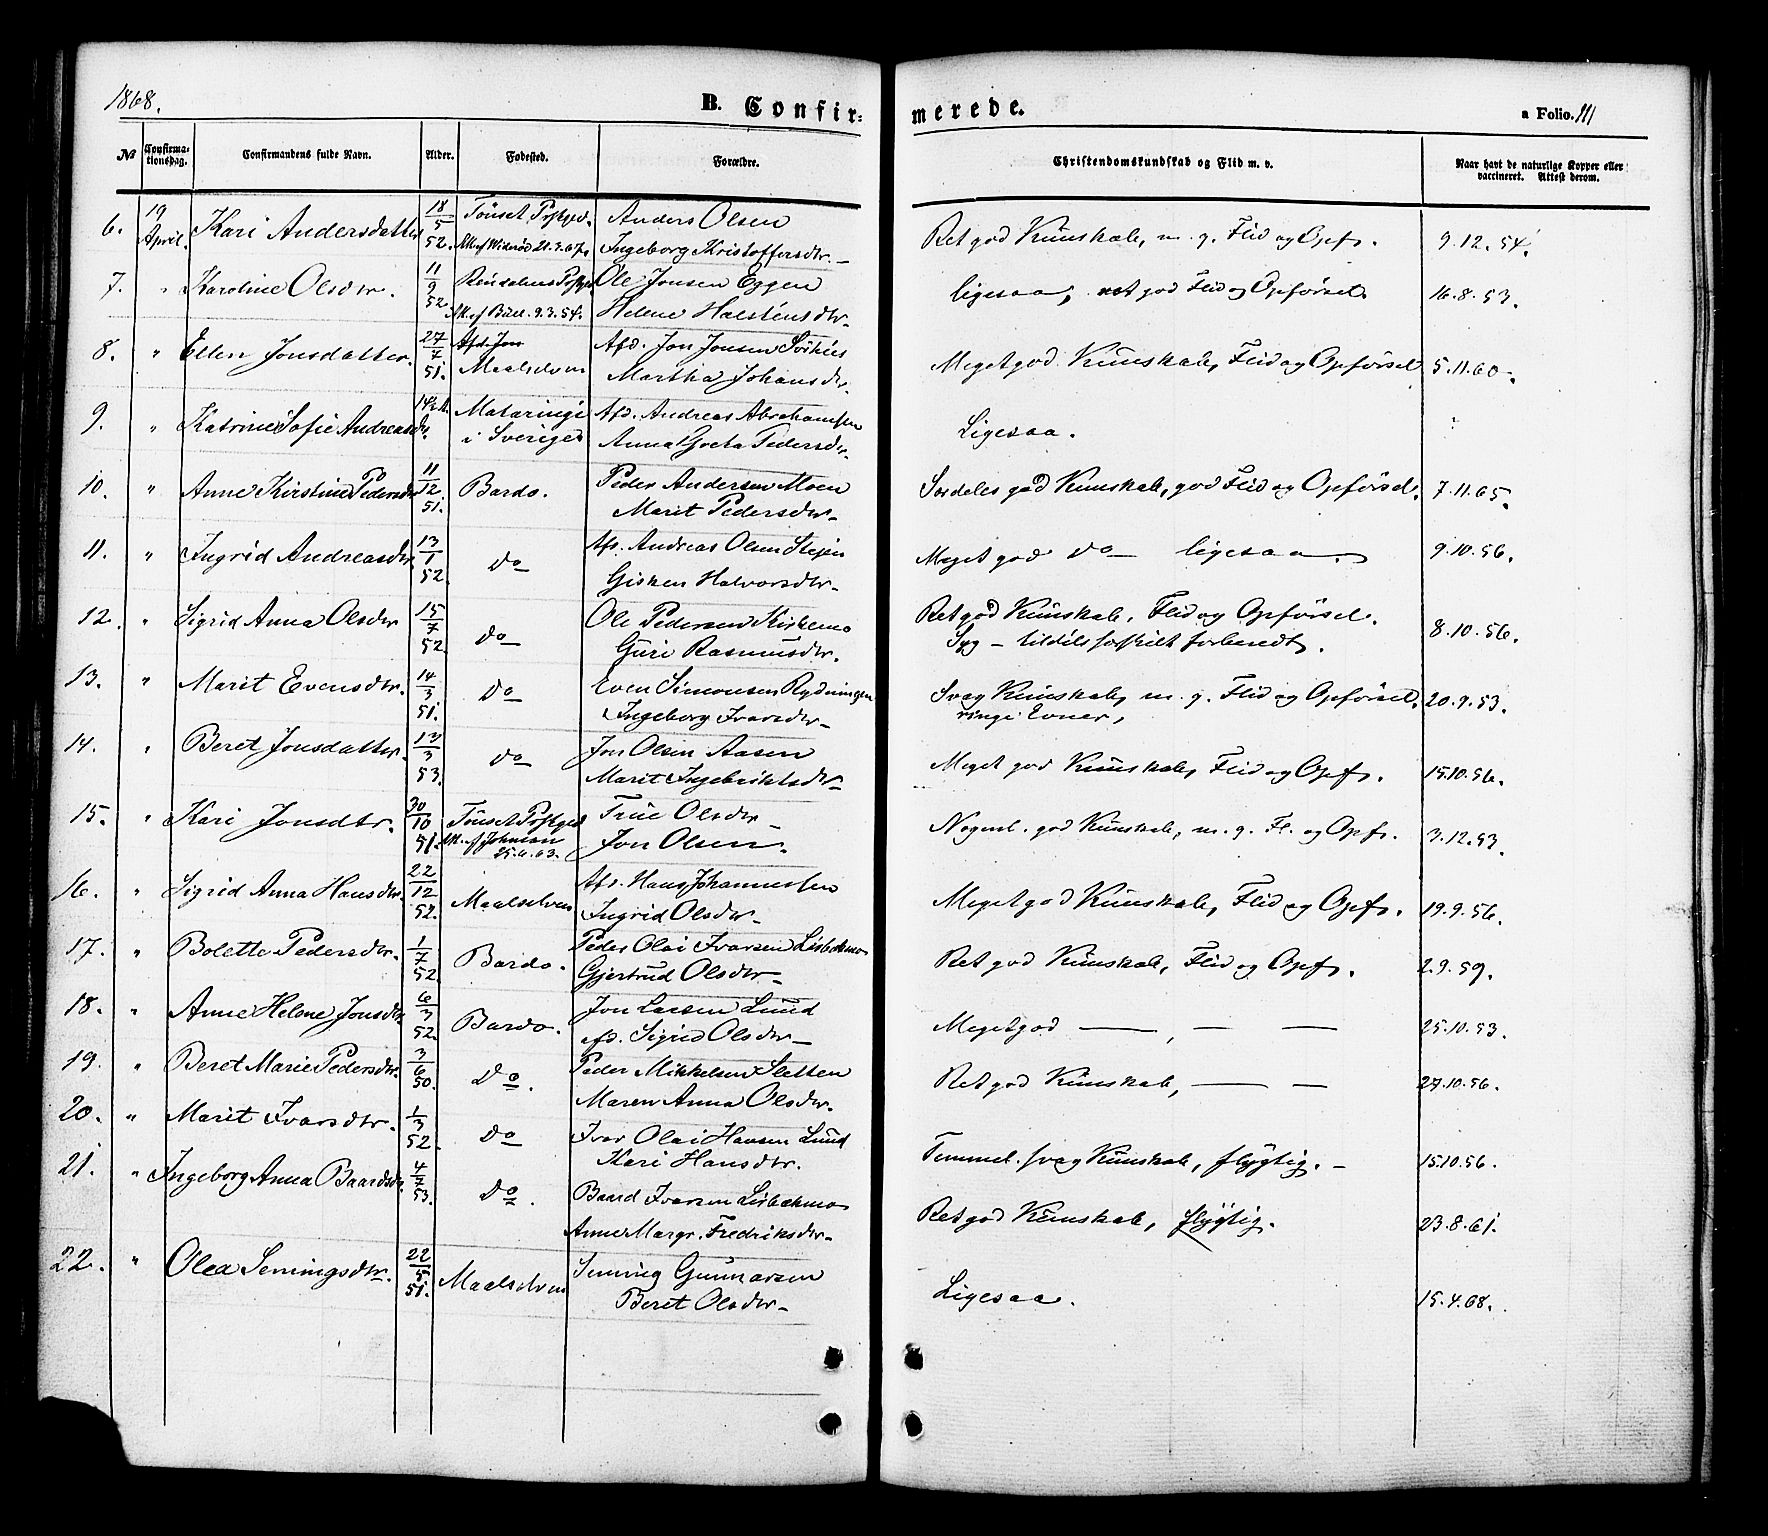 1868.
B. Confir-
merede.
a Folio. 111
No
Confirma-
tionsdag.
Confirmandens fulde Navn.
Alder.
Fødested.
Forældre.
Christendomskundskab og Flid m. v.
Naar havt de naturlige Kopper eller
vaccineret. Attest derom.
6. 19 April. Kari Andersdatter 18/5 52. Tönset Prstgjd. Anders Olsen
21.3.67. Ingeborg Kristoffersdtr.
Ret god Kundskab, m. g. Flid og Opf. 9.12.54.
7. " Karoline Olsdtr. 11/9 52. Rendalens Ole Jonsen Eggen
9.3.54. Helene Halstensdtr.
ligesaa, ret god Flid og Opførsel. 16.8.53.
8. " Ellen Jonsdatter. 27/4 51. Maalselven Afd. Jon Jonsen
Martha Johansdtr.
Meget god Kundskab, Flid og Opførsel 5.11.60.
9. " Katrine Sofie Andreasdtr. 14½ A. Mataringi i Sverige Afd. Andreas Abrahamsen
Anna Greta Pedersdtr.
Ligesaa. "
10. " Anne Kirstine Pedersdtr 11/12 51. Bardo. Peder Andersen Moen
Marit Pedersdtr.
Særdeles god Kundskab, god Flid og Opførsel. 7.11.65.
11. " Ingrid Andreasdtr. 13/1 52. Do Afd. Andreas Olsen Steien
Gisken Halvorsdtr.
Meget god Do ligesaa. 9.10.56.
12. " Sigrid Anna Olsdtr 15/7 52. Do Ole Pedersen Kirkemo
Guri Rasmusdtr.
Ret god Kundskab. Flid og Opførsel. 8.10.56.
Syg – tildels forberedt.
13. " Marit Evensdtr. 14/3 51. Do Even Simonsen Rydningen
Ingeborg Ivarsdtr
Svag Kundskab, m. g. Flid og Opførsel. 20.9.53.
ringe Evner,
14. " Beret Jonsdatter. 13/3 53. Do Jon Olsen Aasen
Marit Ingebriktsdtr
Meget god Kundskab, Flid og Opf. 15.10.56.
15. " Kari Jonsdtr. 30/10 51. Tönset Prstgjd True Olsdtr
25.6.63. Jon Olsen.
Nogenl. god Kundskab, m. g. Fl. og Opf. 3.12.53.
16. " Sigrid Anna Hansdtr. 22/12 52. Maalselven Afd. Hans Johannessen
Ingrid Olsdtr
Meget god Kundskab, Flid og Opf. 19.9.56.
17. " Bolette Pedersdtr. 1/7 52. Bardo. Peder Olai Ivarsen Lisbetmo
Gjertrud Olsdtr
Ret god Kundskab, Flid og Opf. 2.9.59.
18. " Anne Helene Jonsdtr 6/3 52. Bardo. Jon Larsen Lund
Afd. Sigrid Olsdtr
Meget god — , — — 25.10.53.
19. " Beret Marie Pedersdtr. 3/6 50. Do. Peder Mikkelsen Sletten
Maren Anna Olsdtr.
Ret god Kundskab, — — 27.10.56.
20. " Marit Ivarsdtr. 1/3 52. Do Ivar Olai Hansen Lund
Kari Hansdtr.
Temmel. svag Kundskab, flygtig. – 15.10.56.
21. " Ingeborg Anna Baardsdtr. 4/7 53. Do. Baard Ivarsen Lisbetmo
Anne Margr. Fredriksdtr
Ret god Kundskab, flygtig. 23.8.61.
22. " Olea Senningsdtr. 22/5 51. Maalselven Senning Gunnarsen
Beret Olsdtr
Ligesaa. 15.4.68.